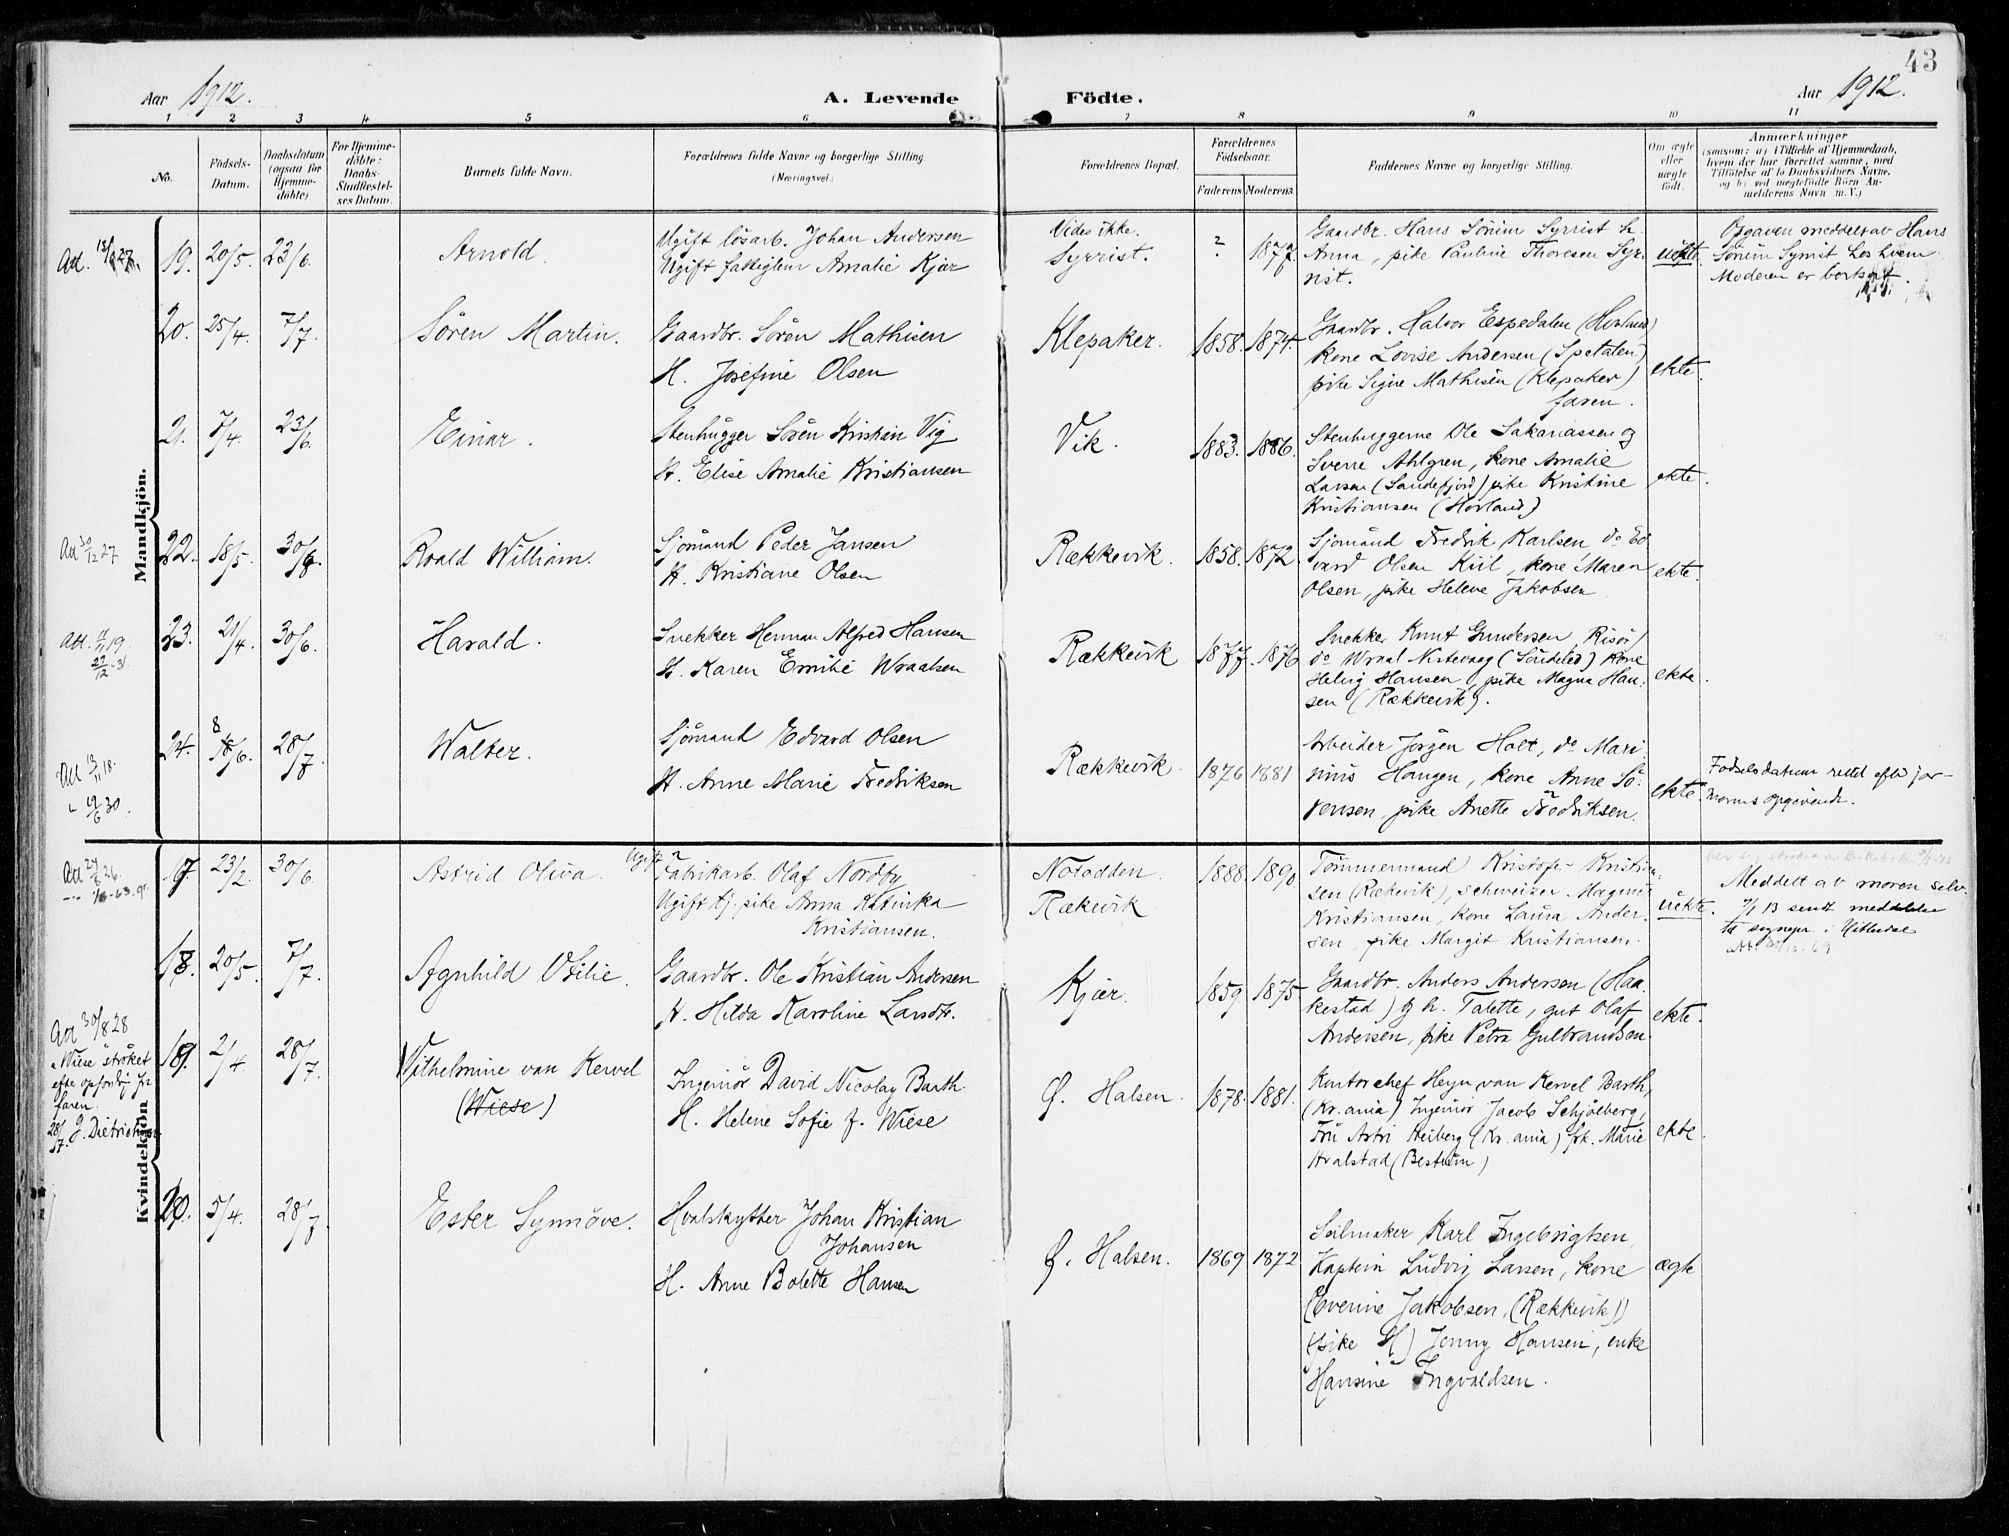 43
Aar 1912.
A. Levende Födte.
Aar 1912.
1 2 3 4 5 6 7 8 9 10 11
No.
Födsels-
Datum.
Daabsdatum
(ogsaa for
Hjemme-
döbte)
For Hjemme-
döbte:
Daabs-
Stadfæstel-
ses Datum.
Barnets fulde Navn.
Forældrenes fulde Navne og borgerlige Stilling
(Næringsvei)
Forældrenes Bopæl.
Forældrenes
Födselsaar.
Faderens. Moderens.
Faddernes Navne og borgerlige Stilling.
Om ægte
eller
uægte
födt.
Anmærkninger
(saasom: a) i Tilfælde af Hjemmedaab,
hvem der har forrettet samme, med
Tilföielse af to Daabsvidners Navne,
og b) ved uegtefödte Börn An-
mælderens Navn m. V.)
Mandkjön.
19. 20/5. 23/6.
Arnold.
Ugift lösarb. Johan Andersen
Ugift fattiglem Amalie Kjær
Vides ikke.
Syrrist.
? 1877
Gaardbr. Hans Sörum Syrrist h.
Anna, pike Pauline Thoresen Syr-
rist.
uekte.
Opgaven meddelt av Hans
Sörum Syrrist hos hvem
Moderen er bortsat.
20. 25/4. 7/7.
Sören Martin.
Gaardbr. Sören Mathisen
H. Josefine Olsen
Klepaker.
1858. 1874.
Gaardbr. Halvor Espedalen (Hovland)
kone Lovise Andersen (Spetalen)
pike Signe Mathisen (Klepaker)
faren.
ekte.
21. 7/4. 23/6.
Einar.
Stenhugger Sören Kristian Vig
H. Elise Amalie Kristiansen
Vik.
1883. 1886.
Stenhuggerne Ole Sakariassen og
Sverre Ahlgren, kone Amalie
Larsen (Sandefjord) pike Kristine
Kristiansen (Hovland)
ekte.
Att 30/12 27
22. 18/5. 30/6.
Roald William.
Sjömand Peder Jansen
H. Kristiane Olsen
Rækkevik.
1858. 1872.
Sjömand Fredrik Karlsen, do Ed-
vard Olsen Kiil, kone Maren
Olsen, pike Helene Jakobsen
ekte.
Att. 11/11 19.
27/12 -31
23. 21/4. 30/6.
Harald.
Snekker Herman Alfred Hansen
H. Karen Emilie Wraalsen
Rækkevik
1877. 1876
Snekker Knut Gundersen, Risör)
do Wraal Nistevaag (Söndeled) kone
Helvig Hansen, pike Magna Han-
sen (Rækkevik).
ekte.
Att 13/11 18.
" 19/6 30.
24. 8/6. 28/7
Walter.
Sjömand Edvard Olsen
H. Anne Marie Fredriksen
Rækkevik
1876 1881
Arbeider Jörgen Holt, do Mari-
nius Haugen, kone Anne Sö-
rensen, pike Anette Fredriksen.
ekte.
Födselsdatum rettet efter jor-
morens opgivende.
Kvindekjön
Att 24/8 26.
17. 23/2. 30/6.
Astrid Oliva.
Ugift Fabrikarb. Olaf Nordby
Ugift tj. pike Anna Katinka
Kristiansen.
Notodden.
Rækevik
1888. 1890
Tömmermand Kristofer Kristian-
sen (Rækevik), schweizer Magnus
Kristiansen, kone Laura Ander-
sen, pike Margit Kristiansen.
uekte.
Meddelt av moren selv.
7/1 13 sendt meddelelse
til sognepr. i Hitterdal
18. 20/5. 7/7.
Agnhild Otilie.
Gaardbr. Ole Kristian Andersen
H. Hilda Karoline Larsdtr.
Kjær.
1859. 1875.
Gaardbr. Anders Andersen (Haa-
kestad) og h. Talette, gut Olaf
Andersen, pike Petra Gulbrandsen.
ekte.
Att 30/8 28
"Wiese" ströket
efter opfordr fr
faren.
28/ 17. J. Dietrichson
19. 2/4 28/7.
Wilhelmine van Kervel
(Wiese)
Ingeniör David Nicolay Barth
H. Helene Sofie f. Wiese
Ö. Halsen.
1878. 1881.
Kontorchef Heyn van Kervel Barth,
(Kr.ania) Ingeniör Jacob Schjöelberg,
Fru Astri Heiberg (Kr.ania) frk. Marie
Hvalstad (Bestum)
ekte.
20. 5/4. 28/7
Ester Synnöve.
Hvalskytter Johan Kristian
Johansen
H. Anne Bolette Hansen
Ö. Halsen.
1869 1872
Seilmaker Karl Ingebrigtsen,
Kaptein Ludvig Larsen, kone
(Everine Jakobsen, (Rækkevik))
(pike H) Jenny Hansen, enke
Hansine Ingvaldsen.
ægte